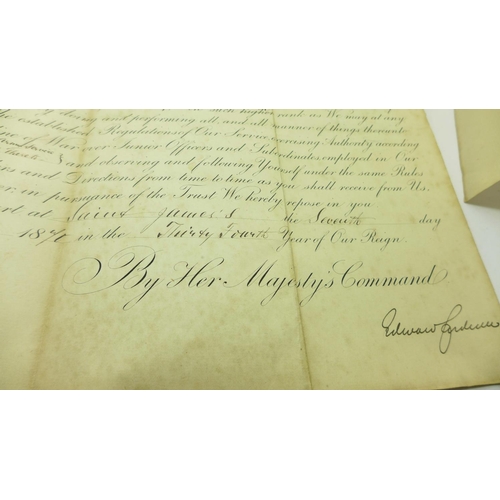 such higher rank as We may at any
doing and performing all, and all manner of things thereunto
the established Regulations of Our Service exercising Authority according
of War over Junior Officers and Subordinates employed in Our
and observing and following Yourself under the same Rules
and Directions from time to time as you shall receive from Us.
in pursuance of the Trust We hereby repose in you
at Saint James's the Seventh day
1871 in the Thirty Fourth Year of Our Reign.
By Her Majesty's Command.
Edward